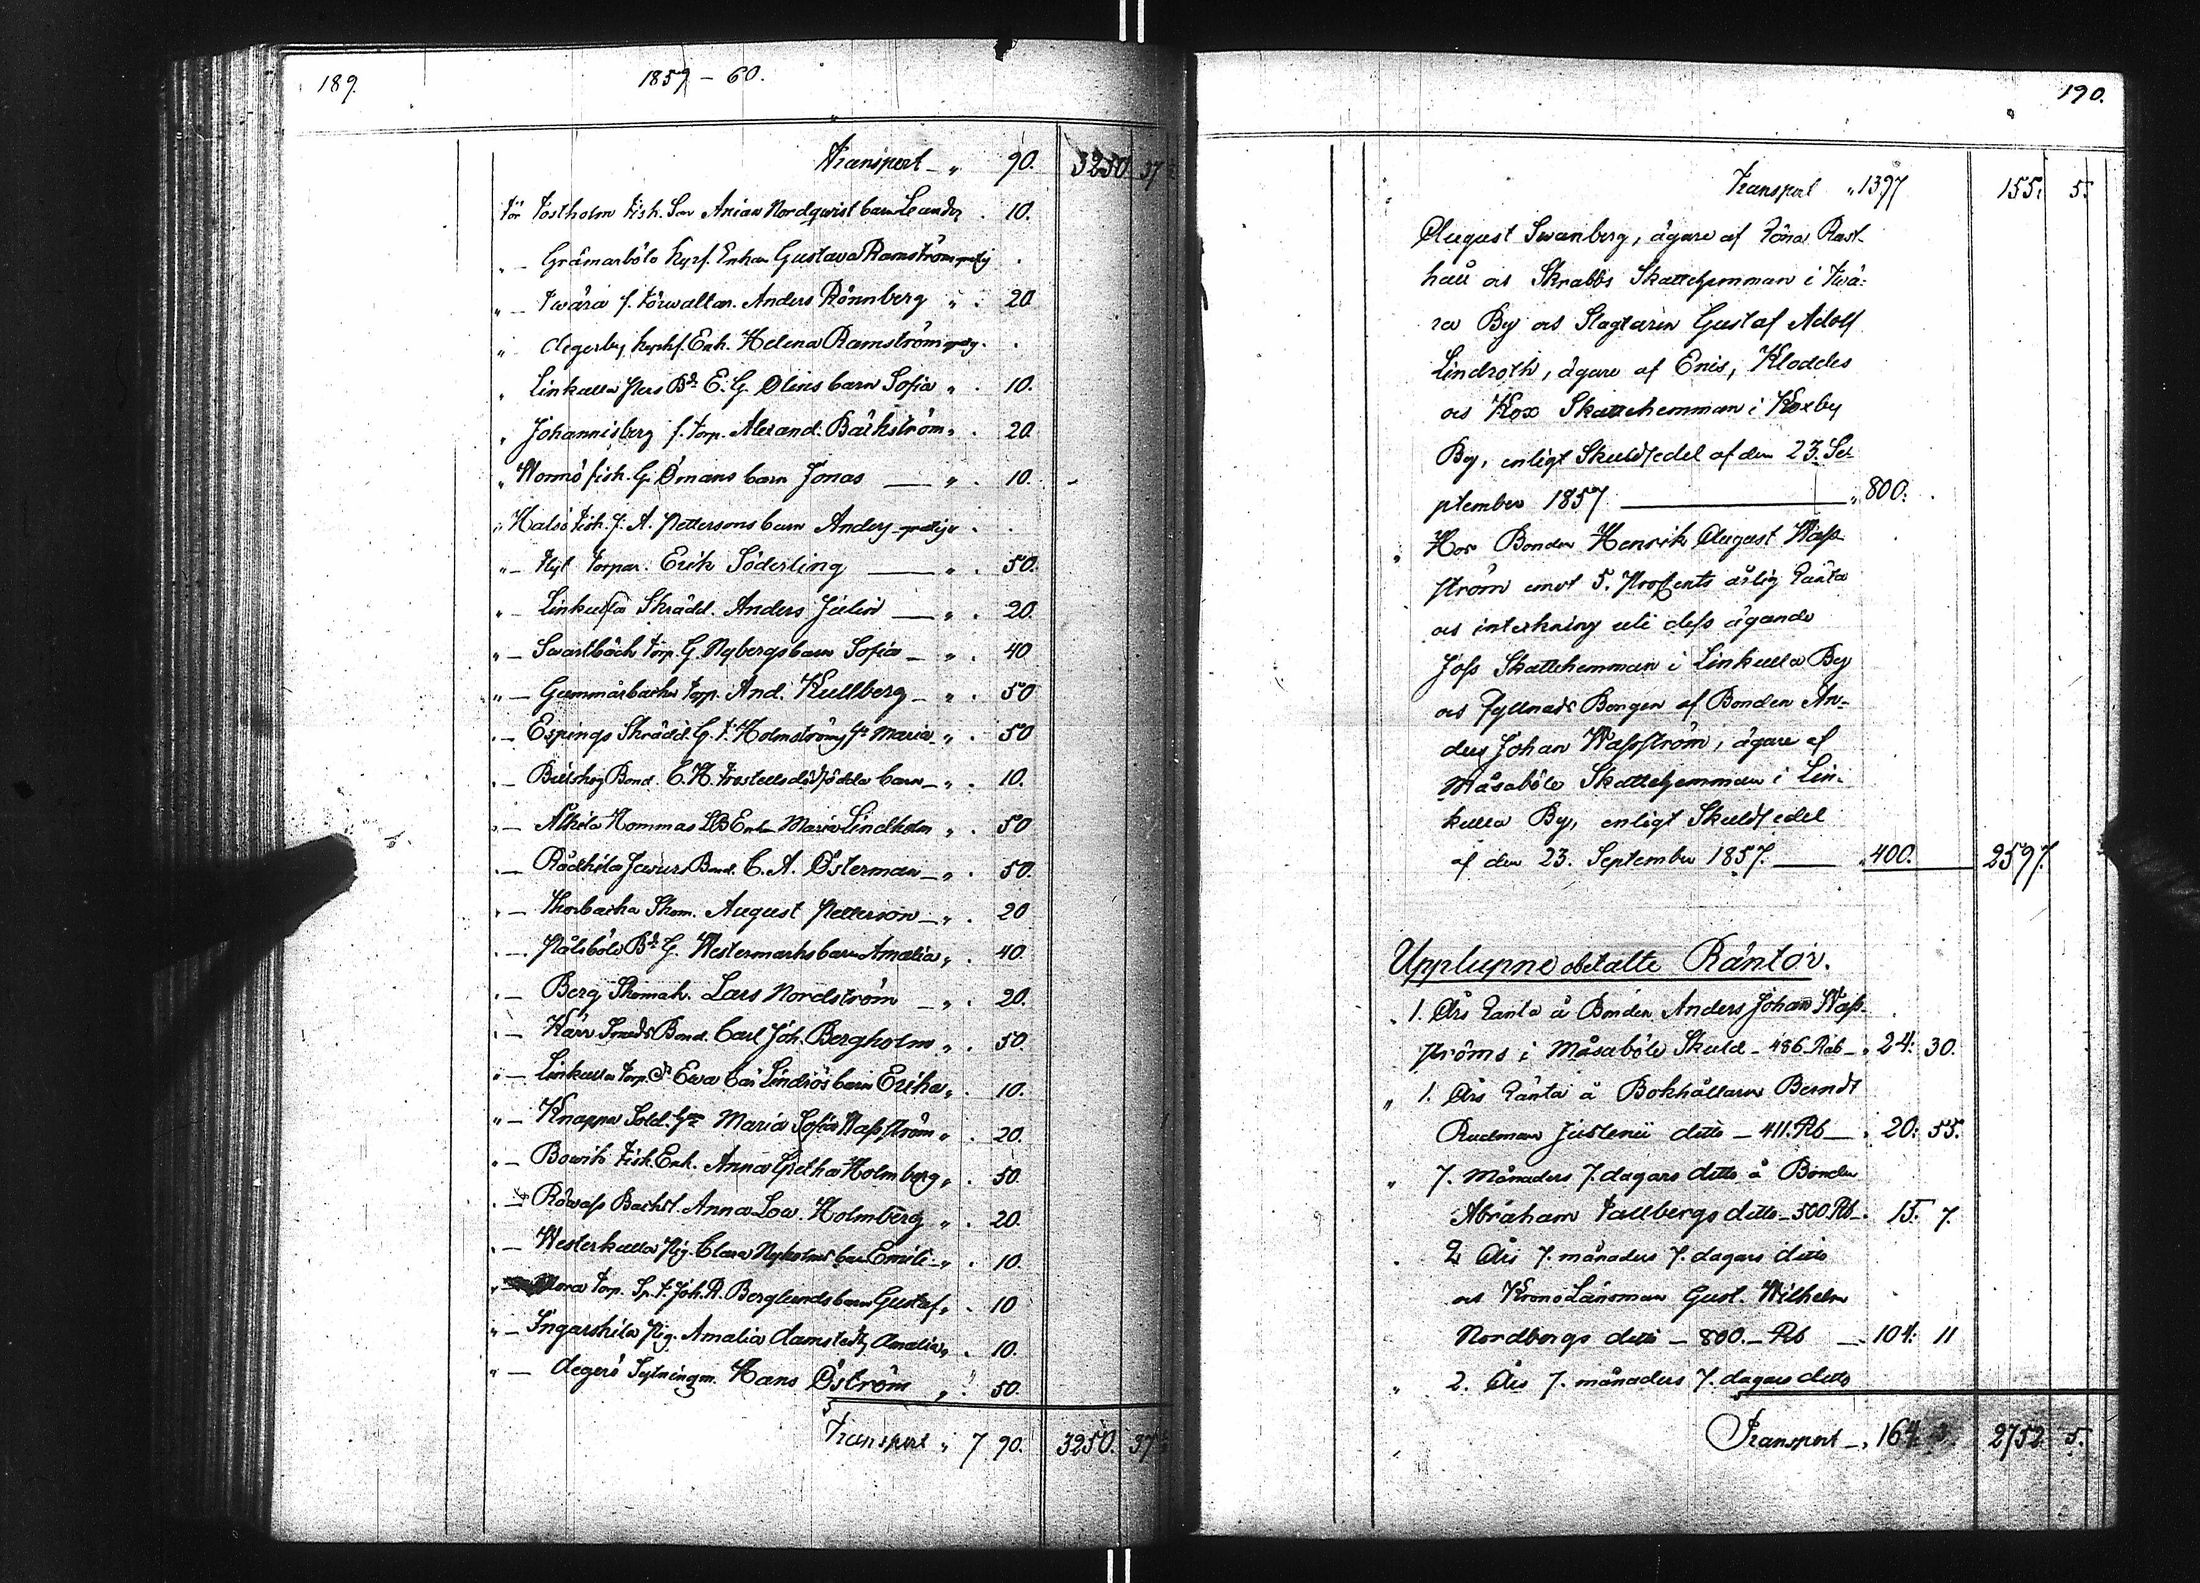 189.
1859 - 60.
Transport „ 90. 3250. 37
för Fostholm Fisk. Son Arian Nordqvist barn Leander . 10.
„ Gråmarböle hysf. Enkan Gustava Ramström gratis .
„ Twärä f. Förvaltar. Anders Rönnberg „ . 20
„ degerby hyshf. Enk. Helena Ramström gratis . .
„ Linkulla Pers Bd. E. G. Olins barn Sofia „ . 10.
„ Johannisberg f. torp. Alexand. Bäckström „ . 20
„ Wormö fisk. G. Ömans barn Jonas — „ . 10.
„ Halsö Fisk. J. A. Pettersons barn Anders gratis . .
„ Torpar. Erik Söderling — „ . 50.
„ Linkulla Skrädd. Anders Julin — „ . 20.
„ Svartbäck torp. G. Nybergs barn Sofia — „ . 40
„ Gummarbacka torp. And. Kullberg — „ . 50
„ Espings Skrädd. G. F. Holmströms Maria „ . 50
„ Bond. C. H. barn „ . 10.
„ Alkila Hommas Enkan Maria Lindholm „ . 50
„ Rådkila Bond. C. A. Österman — „ . 50.
„ Thorbacka Skom. August Petterson — „ . 20
„ Pålsböle Bd. G. Westermarks barn Amalia „ . 40.
„ Berg Skomak. Lars Nordström — „ . 20.
„ Kärr Smeds Bond. Carl Joh. Bergholm „ . 50.
„ Linkulla torp. Eva Lindrös barn Erika „ . 10.
„ Knappa Sold. Maria Sofia Wasström „ . 20.
„ Bowik Fisk. Enk. Anna Gretha Holmberg „ . 50.
„ Röwass Backst. Anna Lov. Holmberg „ . 20.
„ Westerkulla Pig. Clara Nyholms barn Emili „ . 10.
„ torp. Joh. R. Berglunds barn Gustaf „ . 10
„ Ingarskila Pig. Amalia Amalia „ . 10.
„ degerö Sytningm. Hans Öström „ . 50.
Transport „ 7 90. 3250. 37
190.
Transport „ 1397 155. 5.
August Swanberg, ägare af Röna Rast-
hall os Skrabbs Skattehemman i Twä-
rä By os Slagtaren Gustaf Adolf
Lindroth, ägare af Enis, Kloddes
os Kox Skattehemman i Koxby
By, enligt Skuldsedel af den 23. Se-
ptember 1857 — „ 800.
„ Hos Bonden Henrik August Wass-
ström emot 5. Procents årlig ränta
os inteckning uti dess ägande
Joss Skattehemman i Linkulla By
os fyllnads Borgen af Bonden An-
ders Johan Wasström, ägare af
Måsaböle Skattehemman i Lin-
kulla By, enligt Skuldsedel
af den 23. September 1857. — „ 400. 2597.
Upplupne obetalte Räntor.
„ 1. Års ränta å Bonden Anders Johan Wass-
ströms i Måsaböle Skuld - 486 Rub - „ 24. 30.
„ 1. Års ränta å Bokhållarn Berndt
Rudman Juslenii ditto — 411. Rb — „ 20. 55.
„ 7. Månaders 7. dagars ditto å Bonden
Abraham Tallbergs ditto - 500 Rb - „ 15. 7.
„ 2 Års 7. månaders 7. dagars ditto
os KronoLänsman Gust. Wilhelm
Nordbergs ditto — 800. — Rb — 104. 11
„ 2. Års 7. månaders 7. dagars ditto
Transport — „ 164. 3. 2752. 5.